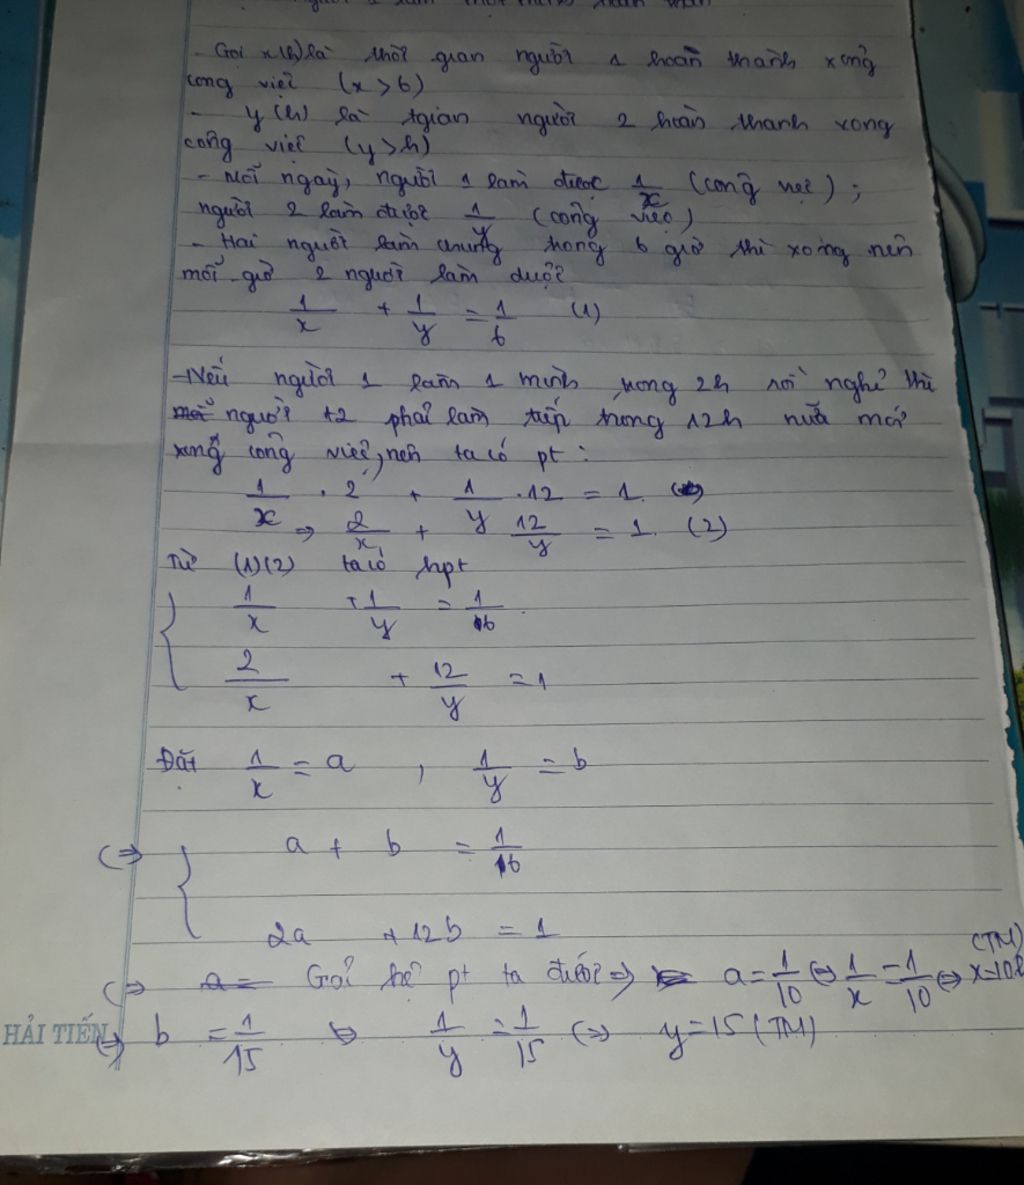 - Gọi x(h) là thời gian người 1 hoàn thành xong
công việc (x > 6)
- y (h) là tgian người 2 hoàn thanh xong
công việc (y > h)
- Mỗi ngày, người 1 làm được 1/x (công việc) ;
người 2 làm được 1/y (công việc)
- Hai người làm chung trong 6 giờ thì xong nên
mỗi giờ 2 người làm được
1/x + 1/y = 1/6 (1)
- Nếu người 1 làm 1 mình trong 2h rồi nghỉ thì
người 2 phải làm tiếp trong 12h nữa mới
xong công việc, nên ta có pt :
1/x . 2 + 1/y . 12 = 1
=> 2/x + 12/y = 1. (2)
Từ (1)(2) ta có hpt
1/x + 1/y = 1/6
2/x + 12/y = 1
Đặt 1/x = a , 1/y = b
(=> a + b = 1/6
2a + 12b = 1
(=> Giải hệ pt ta được => a = 1/10 <=> 1/x = 1/10 <=> x = 10 (TM)
b = 1/15 <=> 1/y = 1/15 (=> y = 15 (TM)
HẢI TIẾN